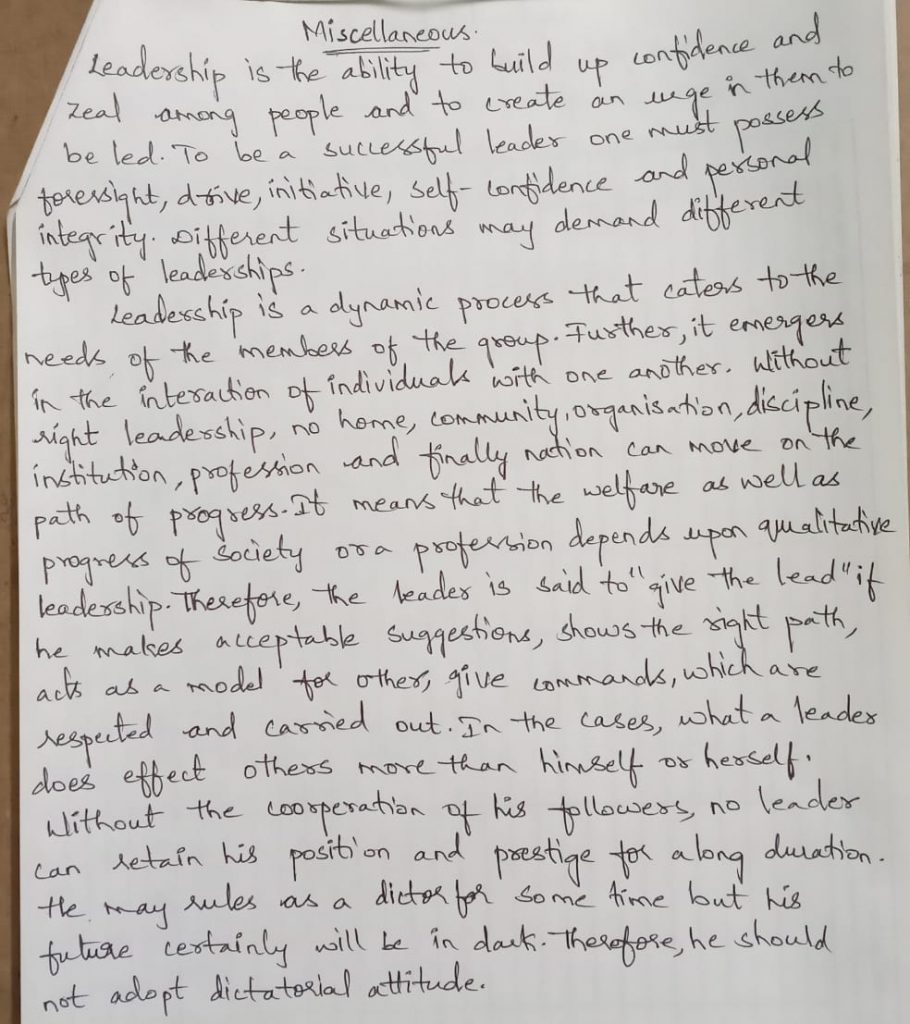 Miscellaneous.
Leadership is the ability to build up confidence and
zeal among people and to create an urge in them to
be led. To be a successful leader one must possess
foresight, drive, initiative, self-confidence and personal
integrity. Different situations may demand different
types of leaderships.
Leadership is a dynamic process that caters to the
needs of the members of the group. Further, it emergers
in the interaction of individuals with one another. Without
right leadership, no home, community, organisation, discipline,
institution, profession and finally nation can move on the
path of progress. It means that the welfare as well as
progress of society or a profession depends upon qualitative
leadership. Therefore, the leader is said to "give the lead" if
he makes acceptable suggestions, shows the right path,
acts as a model for others, give commands, which are
respected and carried out. In the cases, what a leader
does effect others more than himself or herself.
Without the coorperation of his followers, no leader
can retain his position and prestige for a long duration.
He may rules as a dictor for some time but his
future certainly will be in dark. Therefore, he should
not adopt dictatorial attitude.